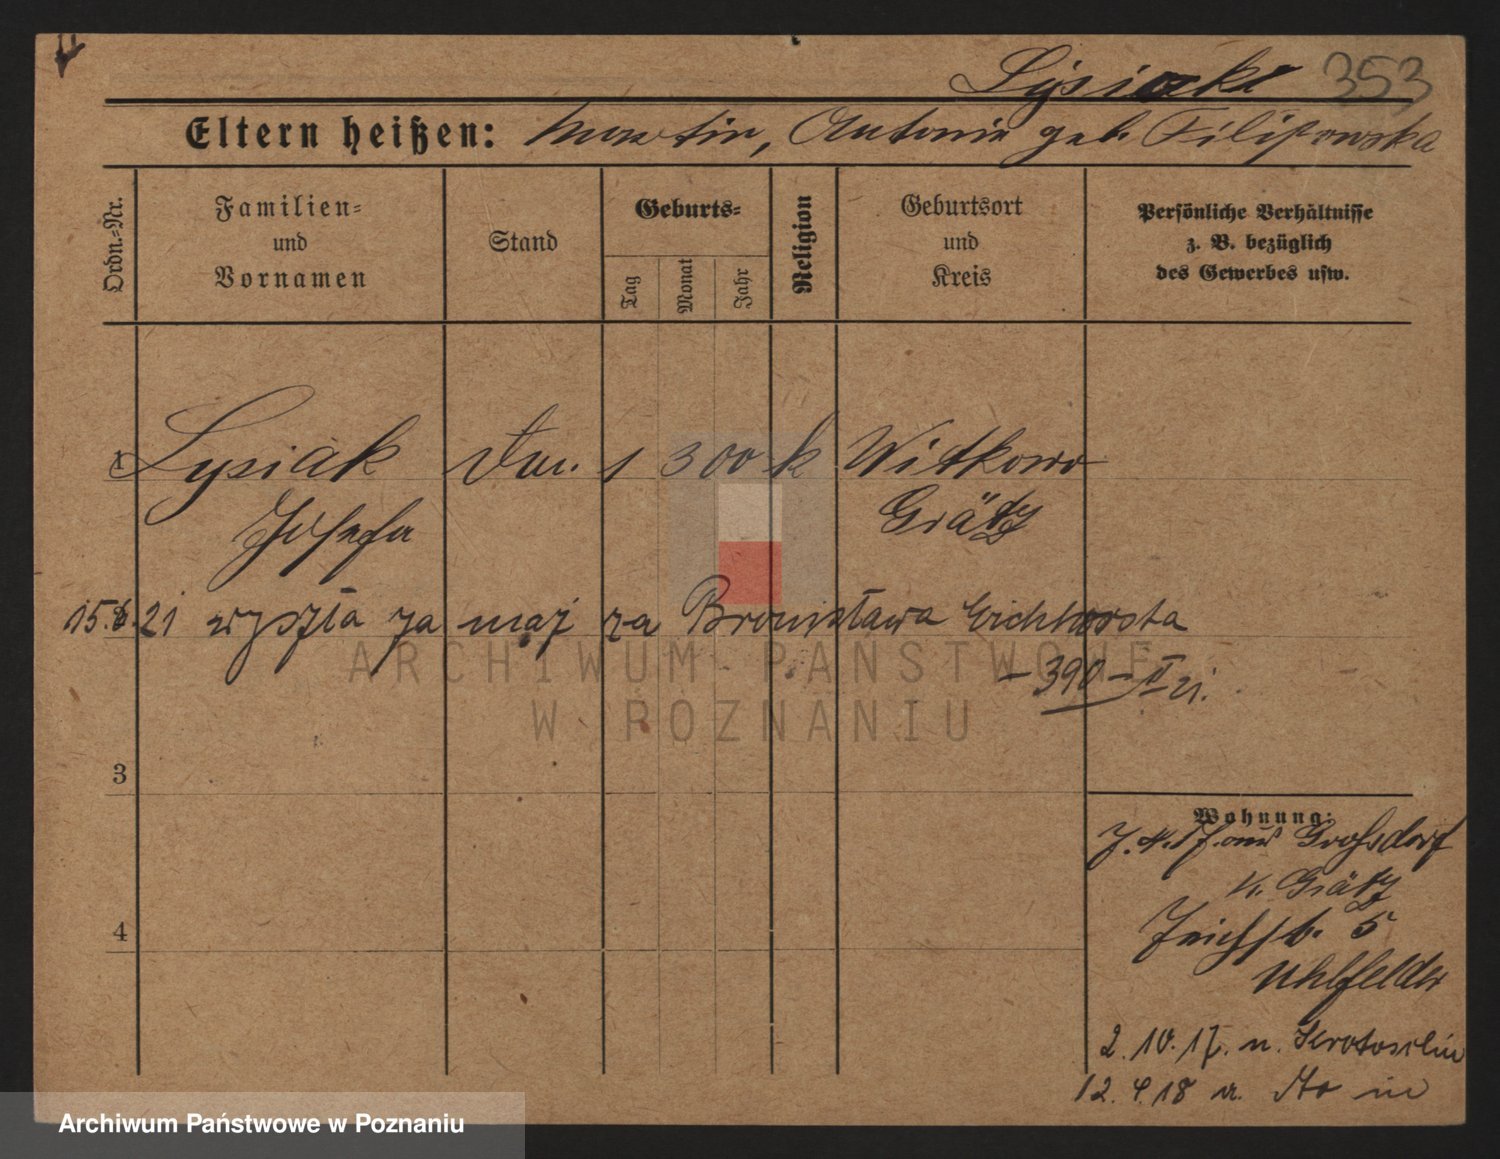 Lysiak 353
Eltern heißen: Martin, Antonie geb. Filipowska
Ordn.-Nr.
Familien-
und
Vornamen
Stand
Geburts-
Tag
Monat
Jahr
Religion
Geburtsort
und
Kreis
Persönliche Verhältnisse
z. B. bezüglich
des Gewerbes usw.
1 Lysiak 1 3 00 k Witkowo
Josefa Grätz
15. 21 wyszła za mąż za Bronisława Eichhorsta
- 390 -
ARCHIWUM PAŃSTWOWE
W POZNANIU
3
Wohnung:
aus Grossdorf
K. Grätz
4
5
Uhlfelder
2.10.17. n. Krotoschin
12.4.18 a.
Archiwum Państwowe w Poznaniu